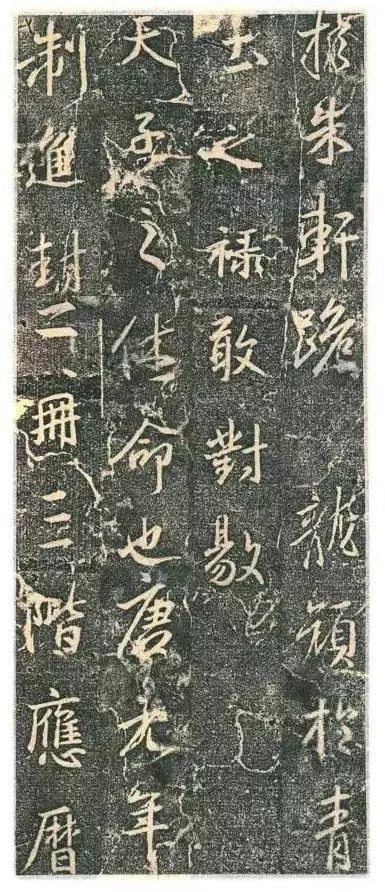 朱軒路 龍於青
土之祿敢對敭
天子之休命也唐元年
制進封二冊三階應曆